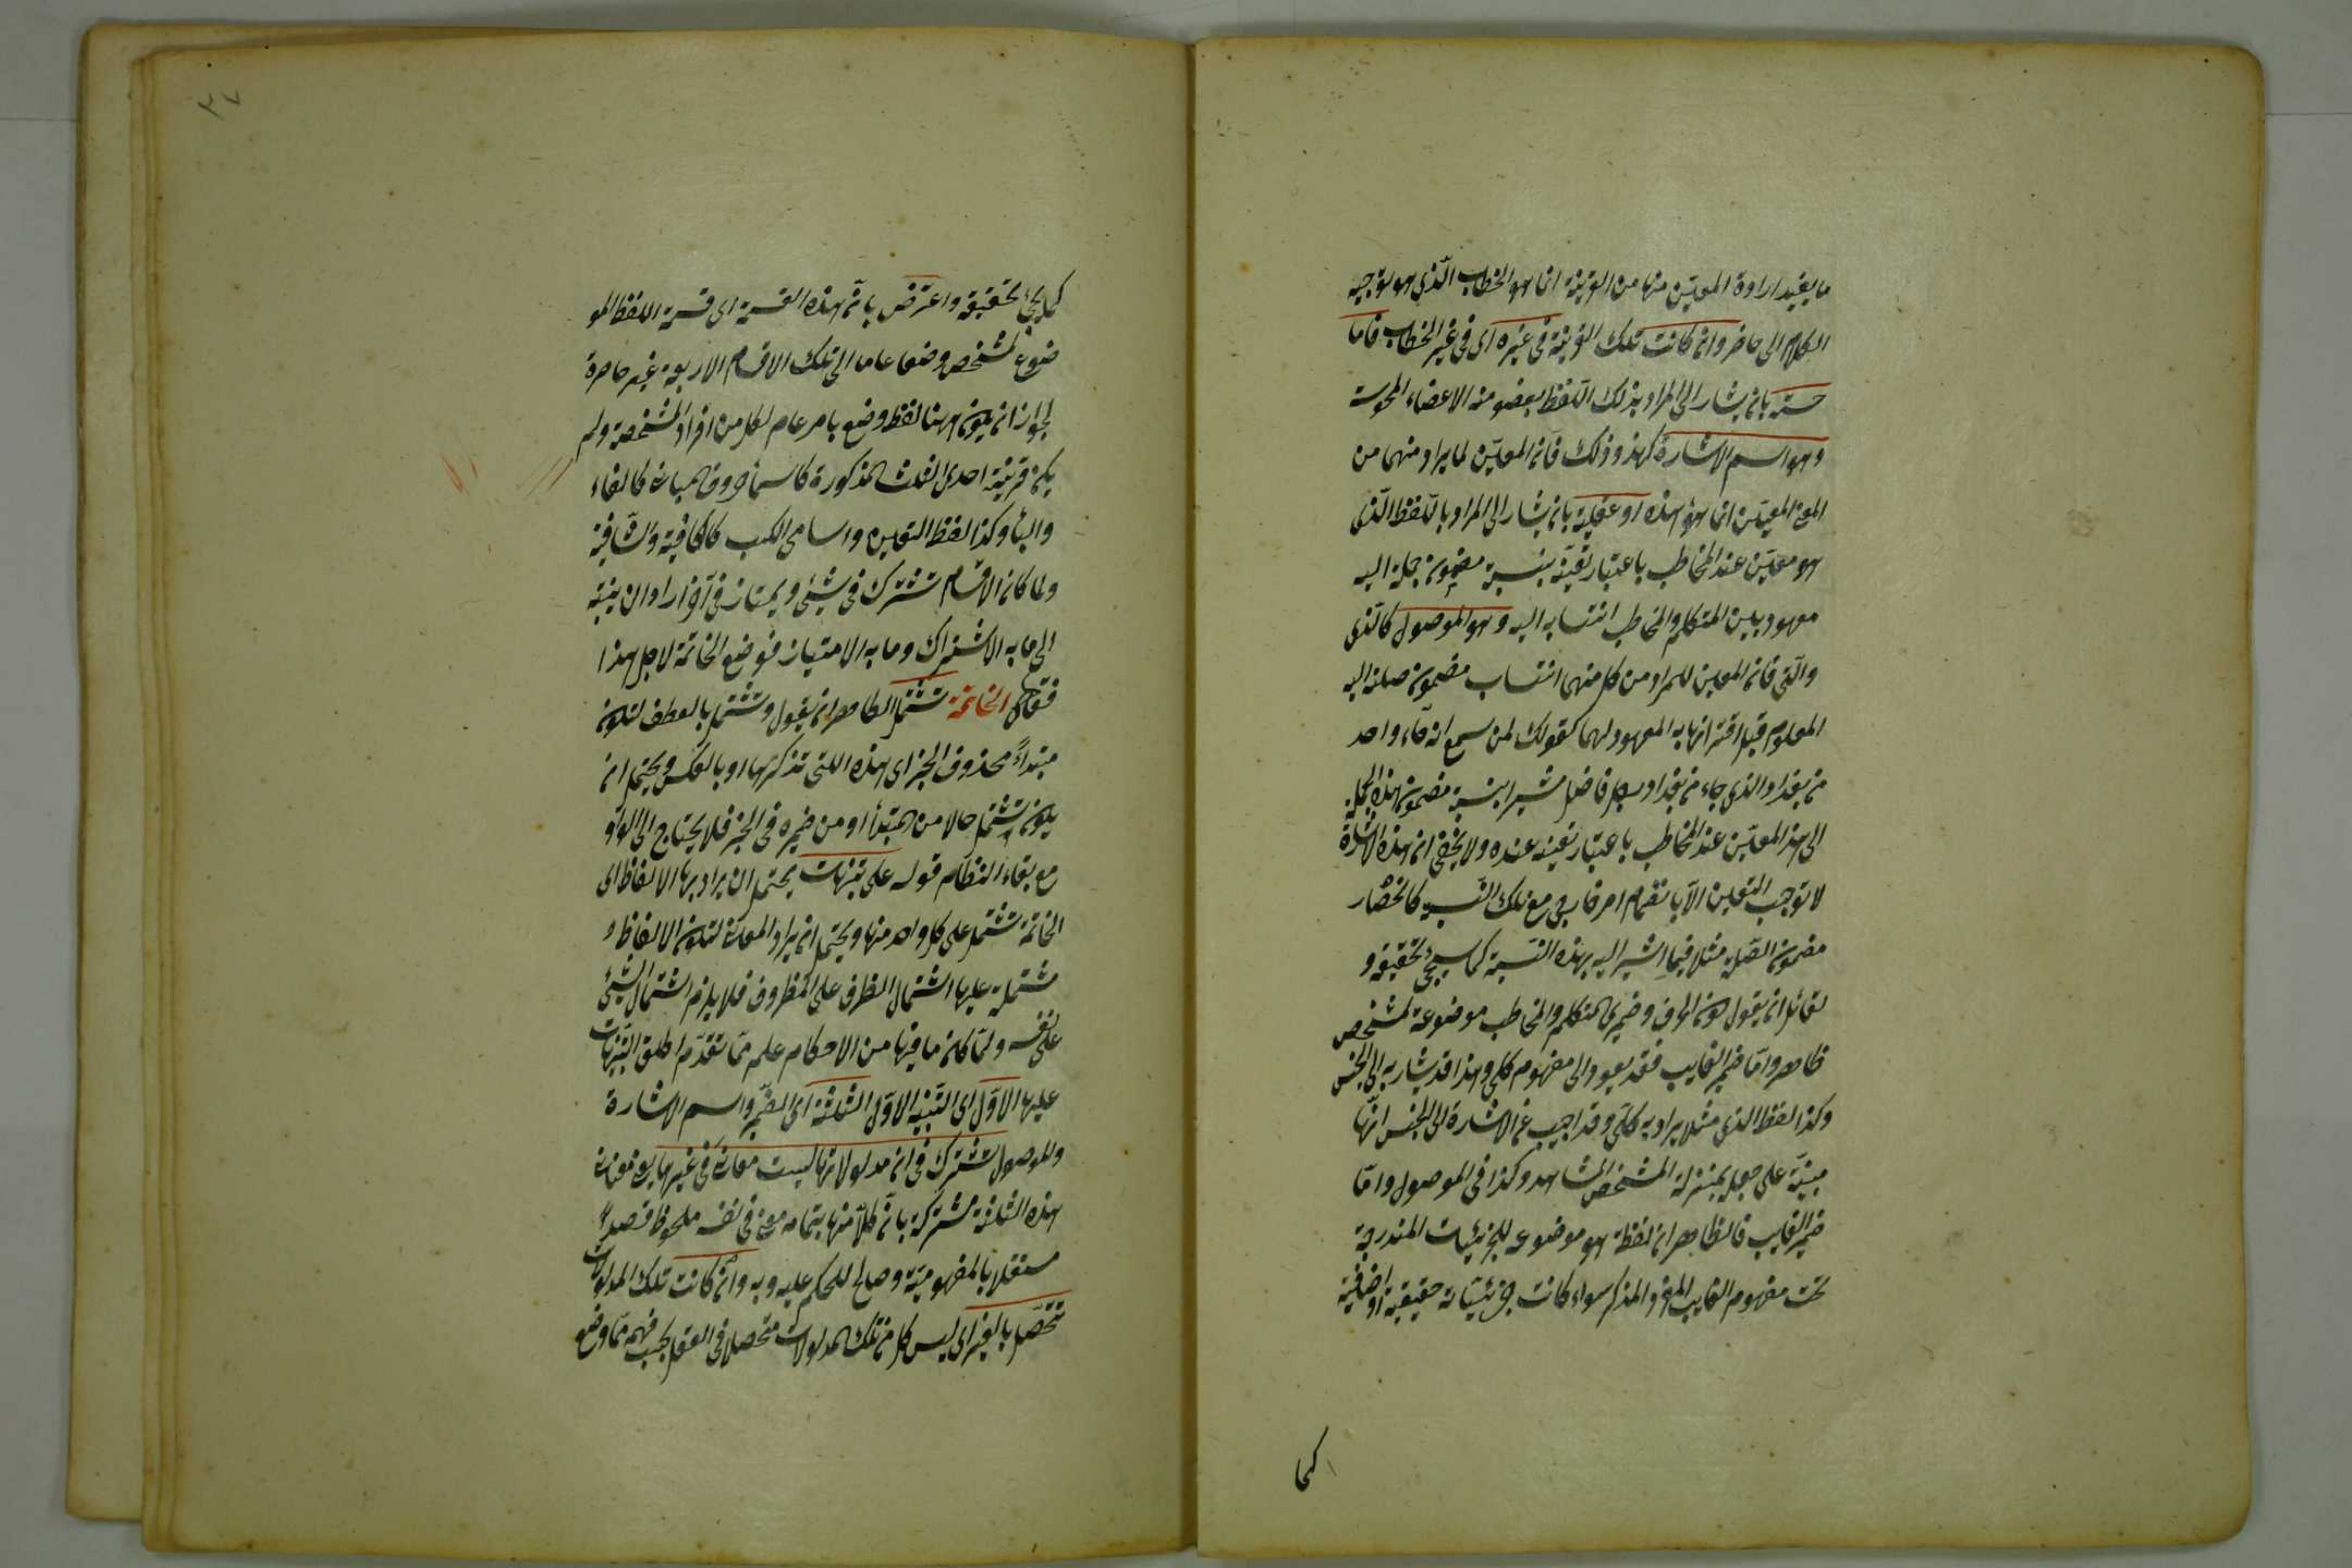 ما يفيد ارادة المعين منها من القرينة انما هو الخطاب الذي هو توجيه
الكلام الى حاضر وان كانت تلك القرينة في غيره اى في غير الخطاب فاما
حسية بان يشار الى المراد بذلك اللفظ بعضو من الاعضاء المحسوسة
وهو اسم الاشارة كهذا وذلك فان المعين لما يراد منهما من
المعنى المعين انما هو هذه او عقلية بان يشار الى المراد باللفظ الذى
هو معين عند المخاطب باعتبار تعينه بنسبة مضمون جملة اليه
معهود بين المتكلم والمخاطب انتسابه اليه وهو الموصول كالذى
والتى فان المعين للمراد من كل منهما انتساب مضمون صلته اليه
المعلوم قبل اقترانها به المعهود لهما كقولك لمن سمع انه جاء واحد
من بغداد الذي جاء من بغداد رجل فاضل مشيرا بنسبة مضمون هذه الجملة
الى هذا المعين عند المخاطب باعتبار تعينه عنده ولا يخفى ان هذه الاشارة
لا توجب التعين الا بانضمام امر خارجى مع تلك النسبة كانحصار
مضمون الصلة مثلا فيما اشير اليه بهذه النسبة كما سيجئ تحقيقه و
لقائل ان يقول كون الحرف وضميرى المتكلم والمخاطب موضوعة لمشخص
ظاهر واما ضمير الغايب فقد يعود الى مفهوم كلى وهذا قد يشار به الى الجنس
وكذا لفظ الذي مثلا يراد به كلى وقد اجيب عن الاشارة الى الجنس انها
مبنية على جعله بمنزلة المشخص المشاهد وكذا فى الموصول واما
ضمير الغايب فالظاهر ان لفظة هو موضوعه للجزئيات المندرجة
تحت مفهوم الغايب المفرد المذكر سواء كانت جزئياته حقيقية او اضافية
كما
كما يجئ تحقيقه واعترض بان هذه القسمة اى قسمة اللفظ المو
ضوع لمشخص وضعا عاما الى تلك الاقسام الاربعة غير حاصرة
لجواز ان يكون ههنا لفظ وضع بامر عام لكل من افراد المشخصة ولم
يكن قرينة احدى الثلث المذكورة كاسماء حروف المبانى كالفاء
والباء وكذا لفظ التعين واسامى الكتب كالكافية والشافية
ولما كان الاقسام تشترك فى شيئ ويمتاز فى آخر اراد ان ينبه
الى ما به الاشتراك وما به الامتياز فوضع الخاتمة لاجل هذا
فقال الخاتمة تشتمل الظاهر ان يقول وتشتمل بالعطف لتكون
مبتدأً محذوف الخبر اى هذه التى تذكرها او بالعكس ويحتمل ان
يكون تشتمل حالا من المبتدأ او من ضميره فى الخبر فلا يحتاج الى الواو
مع بقاء النظام قوله على تنبيهات يحتمل ان يراد بها الالفاظ اى
الخاتمة تشتمل على كل واحد منها ويحتمل ان يراد المعانى لتكون الالفاظ
مشتملة عليها اشتمال الظرف على المظروف فلا يلزم اشتمال الشيئ
على نفسه ولما كان ما فيها من الاحكام علم مما تقدم اطلق التنبيهات
عليها الاول اى التنبيه الاول الثلثة اى الضمير واسم الاشارة
والموصول تشترك فى ان مدلولاتها ليست معانى فى غيرها يعنى معانى
هذه الثلثة مشتركة بان كلا منها بتمامه معنى فى نفسه ملحوظ قصدا
مستقلا بالمفهومية وصالح للحكم عليه وبه وان كانت تلك المدلولات
تتحصل بالغير اى ليس كل من تلك المدلولات متحصلا فى العقل بحسب فهمه مما وضع